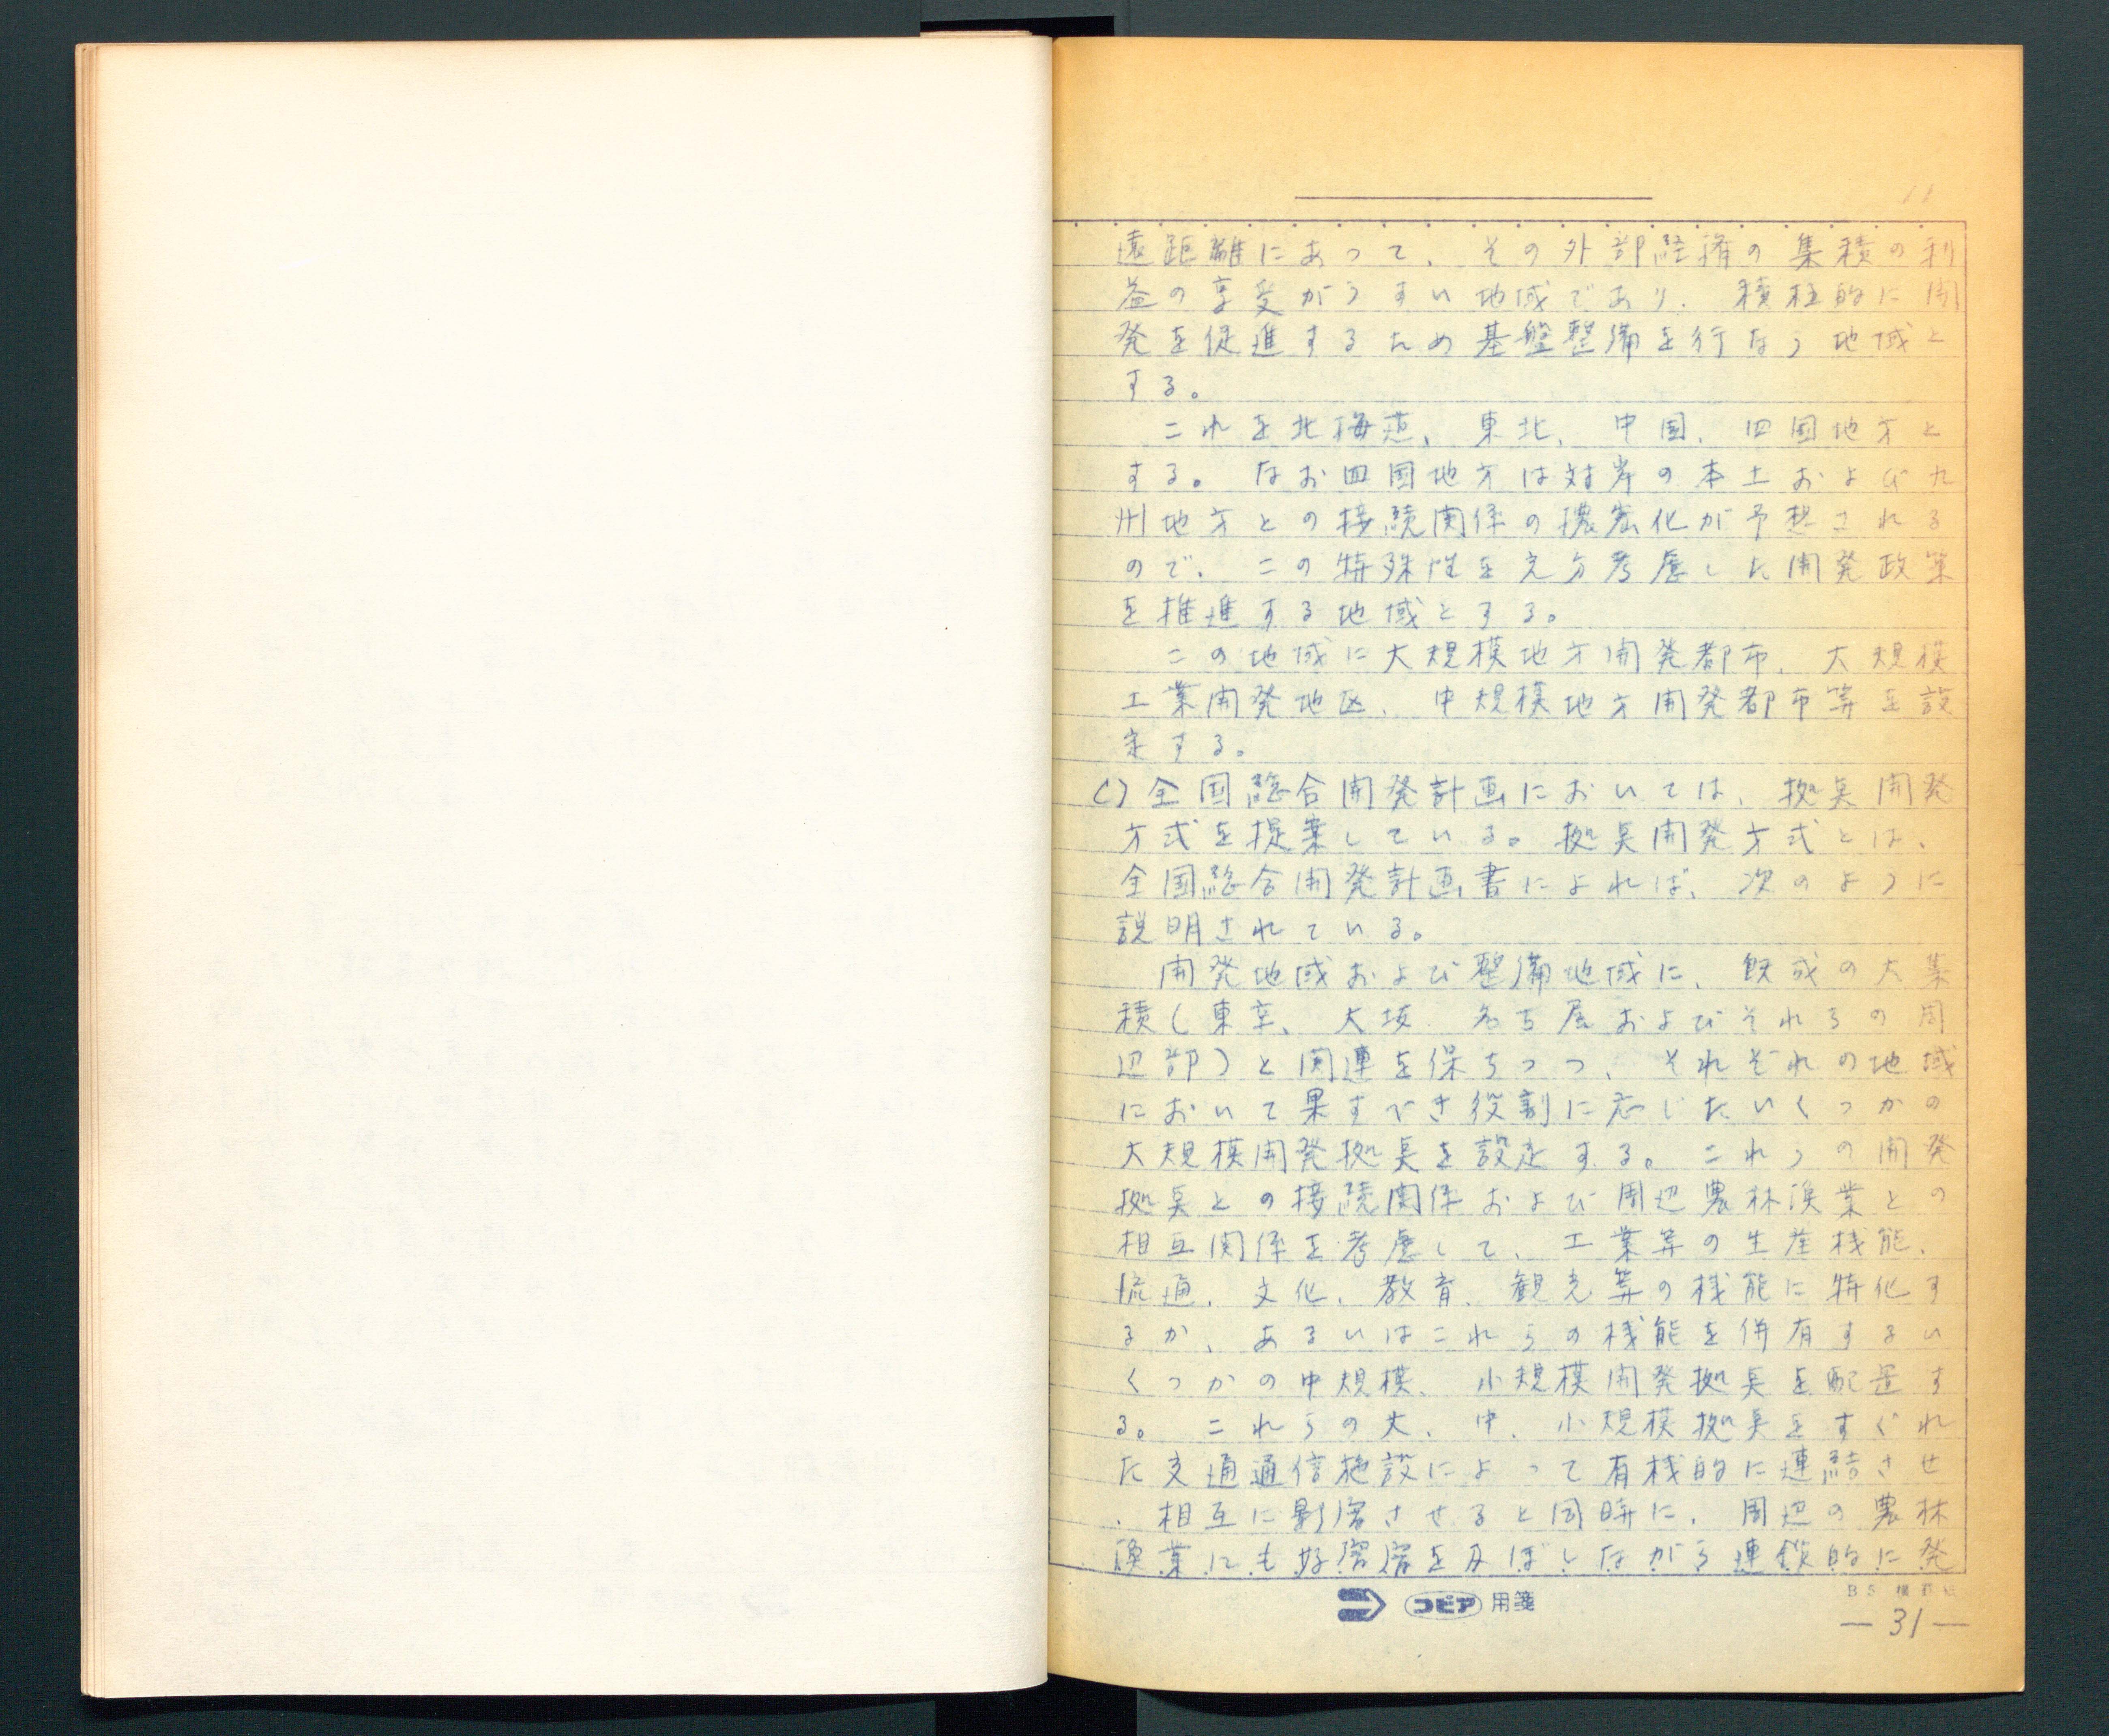 11
遠距離にあって、その外部経済の集積の利
益の享受がうすい地域であり、積極的に開
発を促進するため基盤整備を行なう地域と
する。
これを北海道、東北、中国、四国地方と
する。なお四国地方は対岸の本土および九
州地方との接続関係の濃密化が予想される
ので、この特殊性を充分考慮した開発政策
を推進する地域とする。
この地域に大規模地方開発都市、大規模
工業開発地区、中規模地方開発都市等を設
定する。
C)全国総合開発計画においては、拠点開発
方式を提案している。拠点開発方式とは、
全国総合開発計画書によれば、次のように
説明されている。
開発地域および整備地域に、既成の大集
積(東京、大坂、名古屋およびそれらの周
辺部)と関連を保ちつつ、それぞれの地域
において果すべき役割に応じたいくつかの
大規模開発拠点を設定する。これらの開発
拠点との接続関係および周辺農林漁業との
相互関係を考慮して、工業等の生産機能、
流通、文化、教育、観光等の機能に特化す
るか、あるいはこれらの機能を併有するい
くつかの中規模、小規模開発拠点を配置す
る。これらの大、中、小規模拠点をすぐれ
た交通通信施設によって有機的に連結させ
、相互に影響させると同時に、周辺の農林
漁業にも好影響を及ぼしながら連鎖的に発
コピア 用箋
B5 横罫
—31—